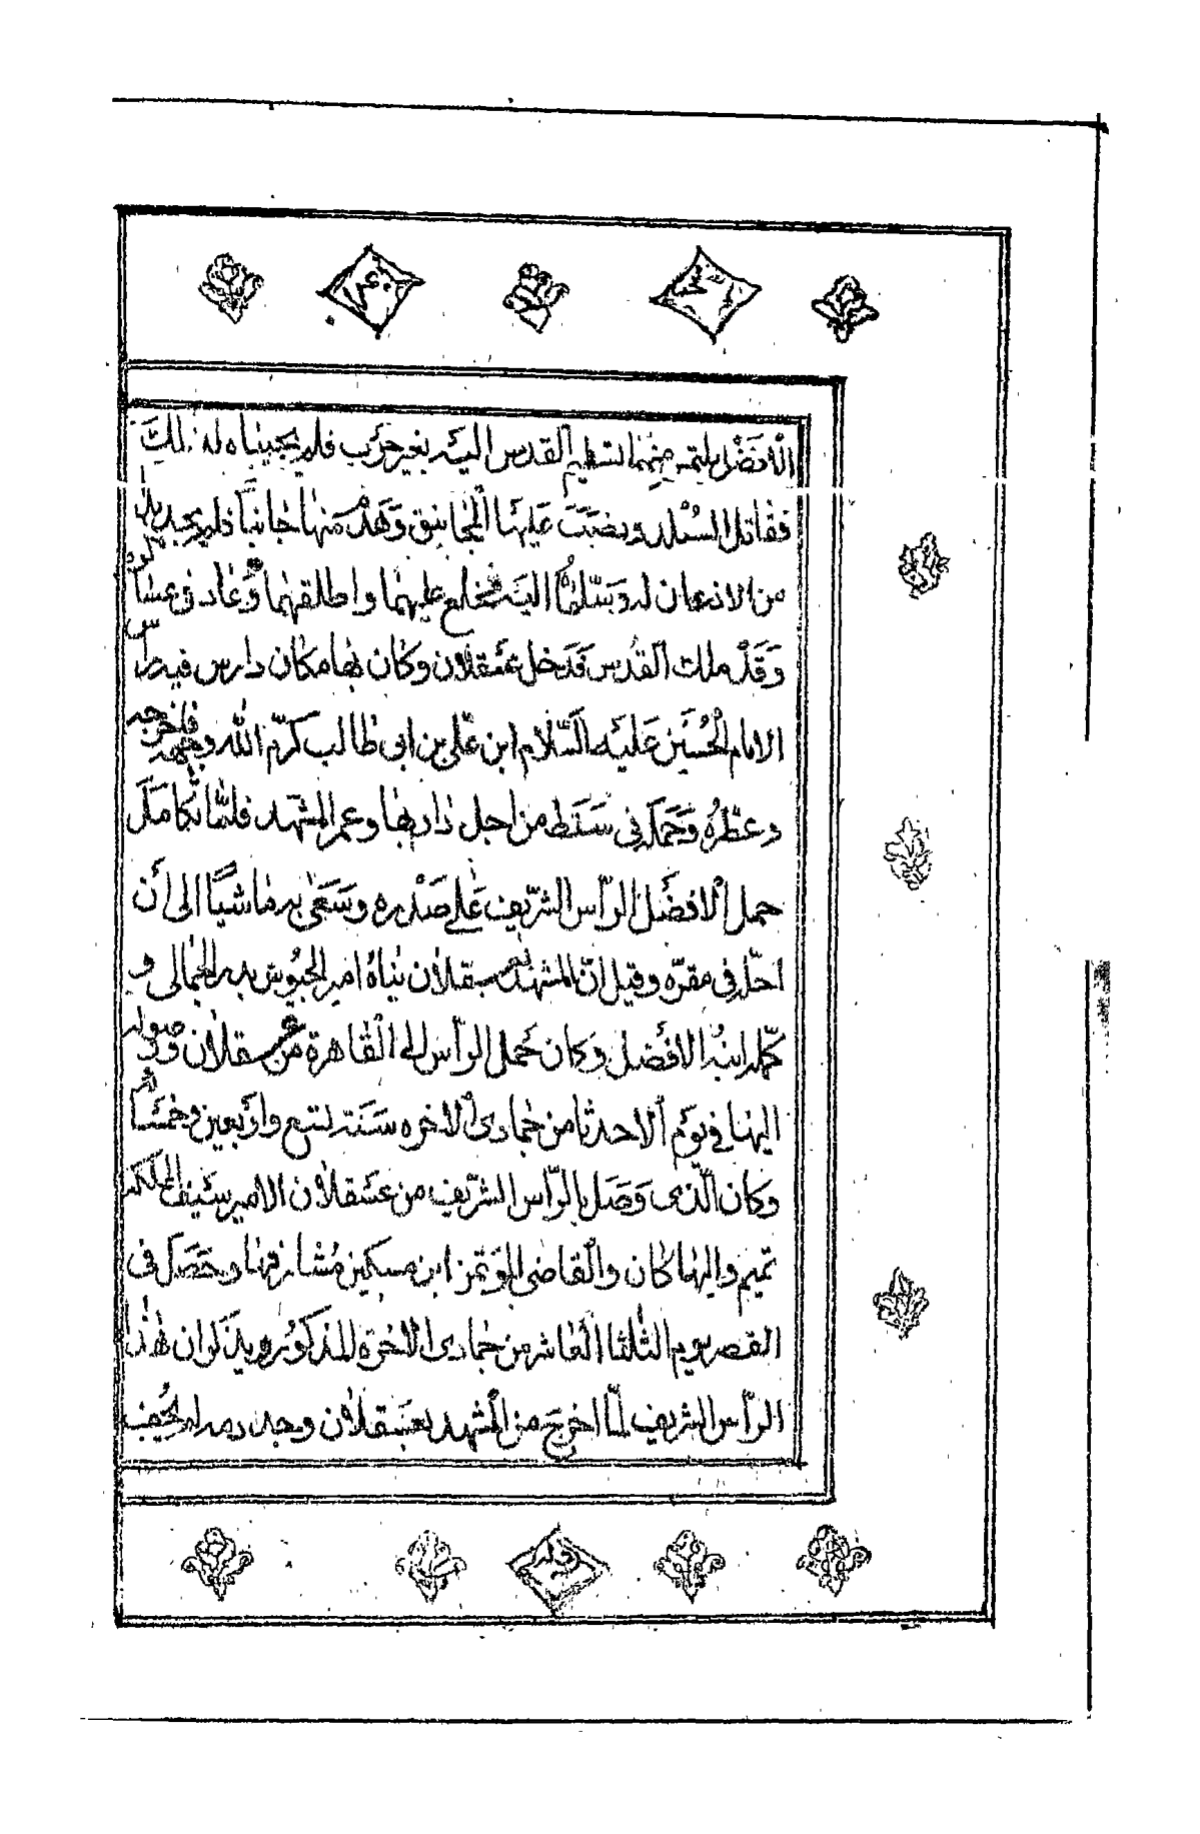 الْافضَل يلتمس منهُما تسليم القدس اليَه بغير حَرب فلم يجيباه له ذلك
فقاتل البَلد ونصَبَ عَليها المجانيق وَهدمَ منها جَانباً فلم يجد بدا
من الاذعان له وسَلمَاها اليَه فخلع عليهما واطلقهما وَعاد في عساكره
وَقد ملك القدس فدَخل عَسقلان وكان بها مكان دارس فيه راس
الامام الحُسَين عَليَه السَّلام ابن عَلى بن ابى طالب كرّم الله وجهه فاخرجه
وعَطّره وَحمَله في سَفط من اجل دار بها وعمر المشهَد فلمّا تكامَل
حمل الافضَل الرّأس الشرّيف عَلى صَدره وسَعَى به ماشيًا الى أن
احلّه في مقرّه وقيل انّ المشهد بعسقلان بناهُ امير الجيُوش بدر الجمالى و
كمّله ابنهُ الافضل وكان حمل الرّأس الى القاهرة من عسقلان ووصوله
اليها في يَوم الاحد ثامن جمادى الاخره سَنَة تسع واربعين وخمسمائة
وكان الّذى وَصَل بالرّأس الشريف من عَسقلان الامير سَيف المملكه
تميم واليها كان والقاضى المؤتمن ابن مسكين مُشارفها وحَصَل فى
القصر يوم الثلثا العاشر من جمادى الاخرة المذكوره ويذكر ان هذا
الرّأس الشريف لمّا اخرجَ من المشهد بعسَقلان وجد دمه لم يجُف
وله